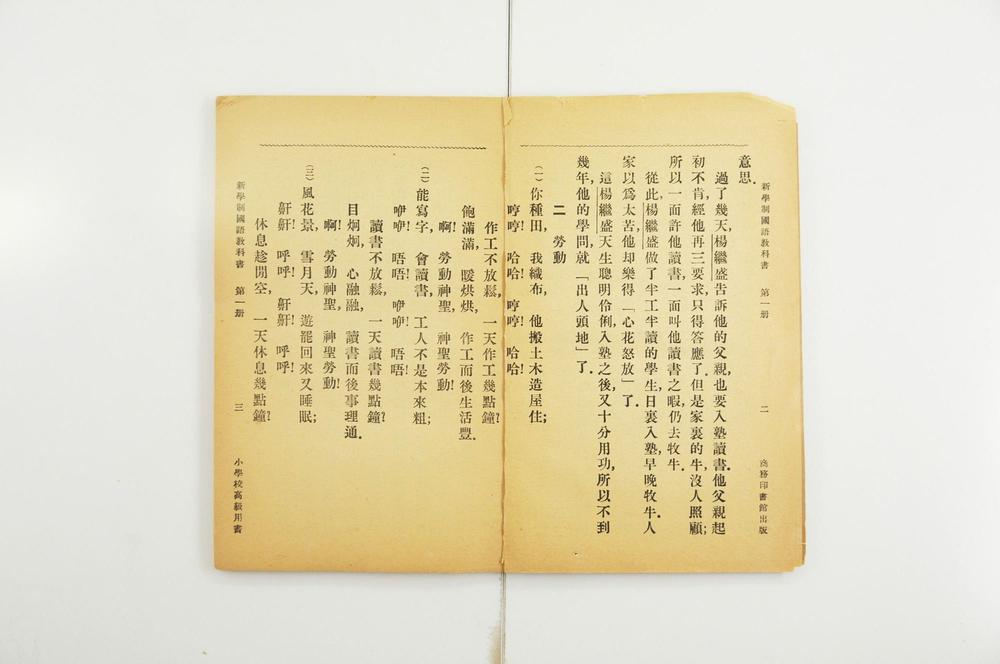 新學制國語教科書 第一册 二 商務印書館出版
意思.
過了幾天,楊繼盛告訴他的父親,也要入塾讀書.他父親起
初不肯,經他再三要求,只得答應了.但是家裏的牛,沒人照顧;
所以一面許他讀書,一面叫他讀書之暇,仍去牧牛.
從此,楊繼盛做了半工半讀的學生,日裏入塾,早晚牧牛,人
家以爲太苦,他却樂得「心花怒放」了.
這楊繼盛天生聰明伶俐,入塾之後,又十分用功,所以不到
幾年,他的學問,就「出人頭地」了.
二 勞動
(一)你種田, 我織布, 他搬土木造屋住;
哼哼! 哈哈! 哼哼! 哈哈!
作工不放鬆, 一天作工幾點鐘?
飽滿滿, 暖烘烘, 作工而後生活豐.
啊! 勞動神聖, 神聖勞動!
(二)能寫字, 會讀書, 工人不是本來粗;
咿咿! 唔唔! 咿咿! 唔唔!
讀書不放鬆, 一天讀書幾點鐘?
目炯炯, 心融融, 讀書而後事理通.
啊! 勞動神聖, 神聖勞動!
(三)風花景, 雪月天, 遊罷回來又睡眠;
鼾鼾! 呼呼! 鼾鼾! 呼呼!
休息趁閒空, 一天休息幾點鐘?
新學制國語教科書 第一册 三 小學校高級用書